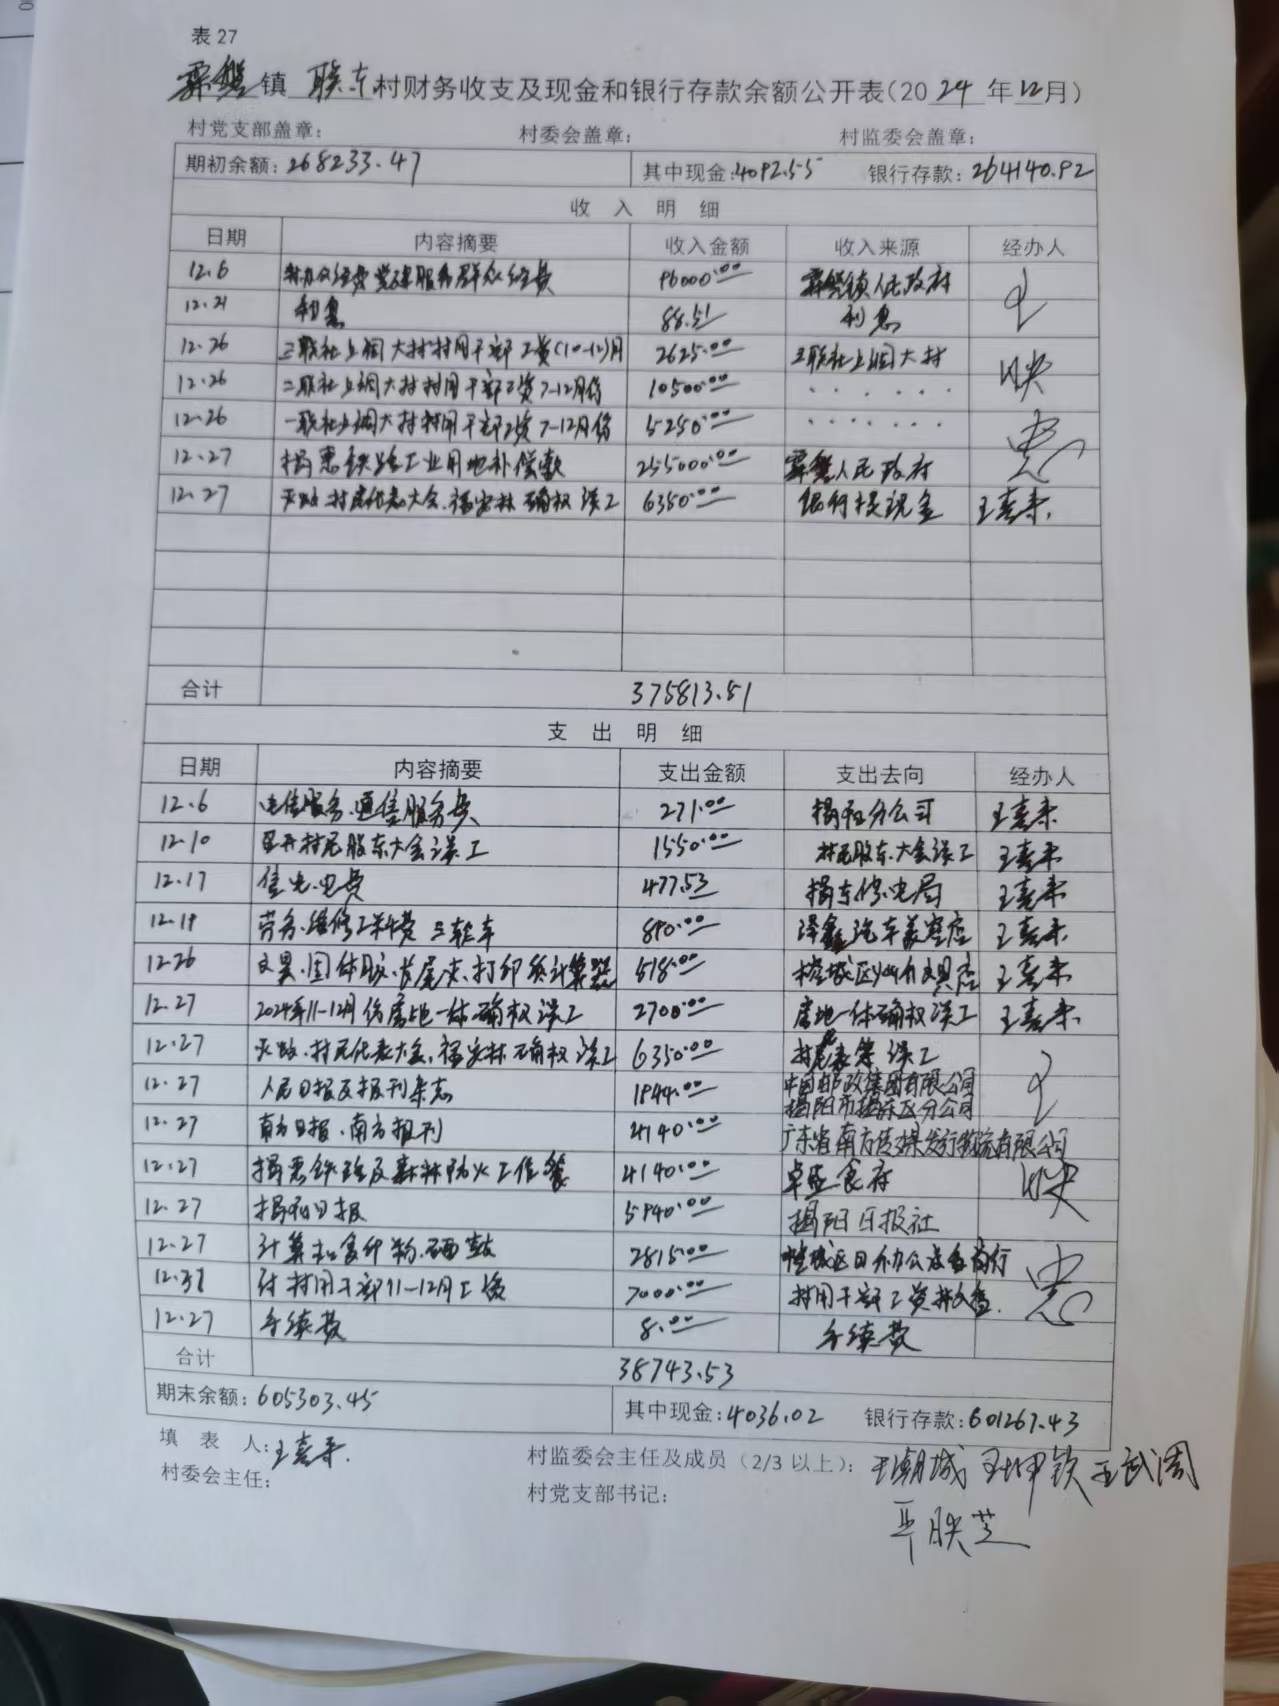 表27
霖磐镇 联东村财务收支及现金和银行存款余额公开表(2024年12月)
村党支部盖章: 村委会盖章: 村监委会盖章:
期初余额:268233.47 其中现金:4092.55 银行存款:264140.92
收入明细
日期 内容摘要 收入金额 收入来源 经办人
12.6 村办公经费党建服务群众经费 96000.00 霖磐镇人民政府
12.21 利息 88.51 利息
12.26 三联社上围大村村用干部工资(10-12)月 2625.00 三联社上围大村
12.26 二联社上围大村村用干部工资7-12月份 10500.00 ......
12.26 一联社上围大村村用干部工资7-12月份 5250.00 .......
12.27 揭惠铁路工业用地补偿款 255000.00 霖磐人民政府
12.27 村民代表大会、确权误工 6350.00 银行提现金 王喜来
合计 375813.51
支出明细
日期 内容摘要 支出金额 支出去向 经办人
12.6 电信服务、通信服务费 271.00 揭阳分公司 王喜来
12.10 召开村民股东大会误工 1550.00 村民股东大会误工 王喜来
12.17 电费 477.53 揭东供电局 王喜来
12.19 劳务、维修工料费 三轮车 890.00 泽鑫汽车美容店 王喜来
12.26 文具、固体胶、长尾夹、打印纸计算器 518.00 榕城区文具店 王喜来
12.27 2024年11-12月份房地一体确权误工 2700.00 房地一体确权误工 王喜来
12.27 村民代表大会、确权误工 6350.00 村民代表等误工
12.27 人民日报及报刊杂志 1944.00 中国邮政集团有限公司揭阳市揭东区分公司
12.27 南方日报、南方报刊 4140.00 广东省南方传媒发行物流有限公司
12.27 揭惠铁路及森林防火工作餐 4140.00 卓盛食府
12.27 揭阳日报 5940.00 揭阳日报社
12.27 计算机复印粉、硒鼓 2815.00 榕城区办公设备商行
12.31 付村用干部11-12月工资 7000.00 村用干部工资
12.27 手续费 8.00 手续费
合计 38743.53
期末余额:605303.45 其中现金:4036.02 银行存款:601267.43
填表人:王喜来 村监委会主任及成员(2/3以上): 王潮城 王坤钦 王武周
村委会主任: 村党支部书记: